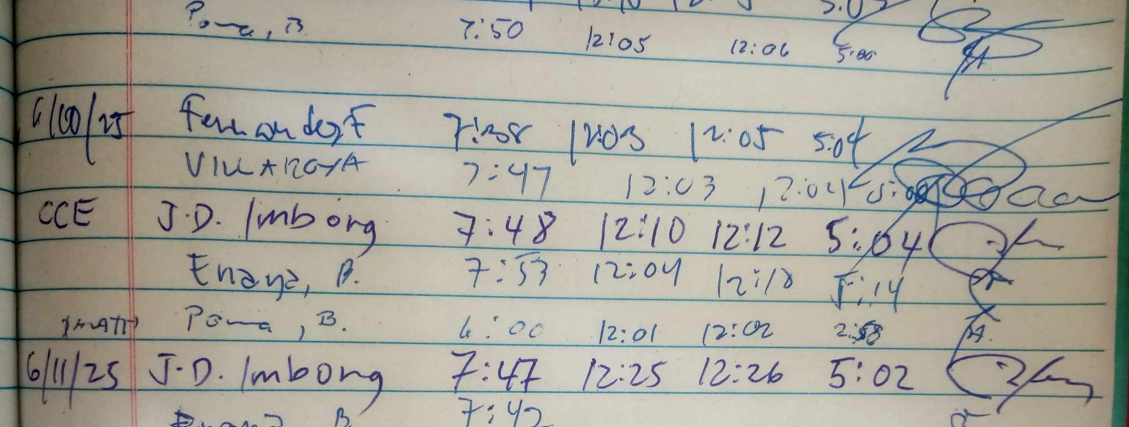 Poma, B. 7:50 12:05 12:06 5:00
6/10/25 Fernandez F 7:38 12:03 12:05 5:04
VILLAROYA 7:47 12:03 12:04 5:00
CCE J.D. Imbong 7:48 12:10 12:12 5:04
Enaya, B. 7:53 12:04 12:18 5:14
Poma, B. 6:00 12:01 12:02 2:58
6/11/25 J.D. Imbong 7:47 12:25 12:26 5:02
B 7:42